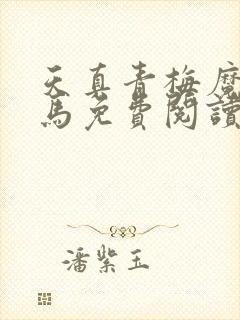 天真青梅魔
馬免費閱讀
潘紫玉